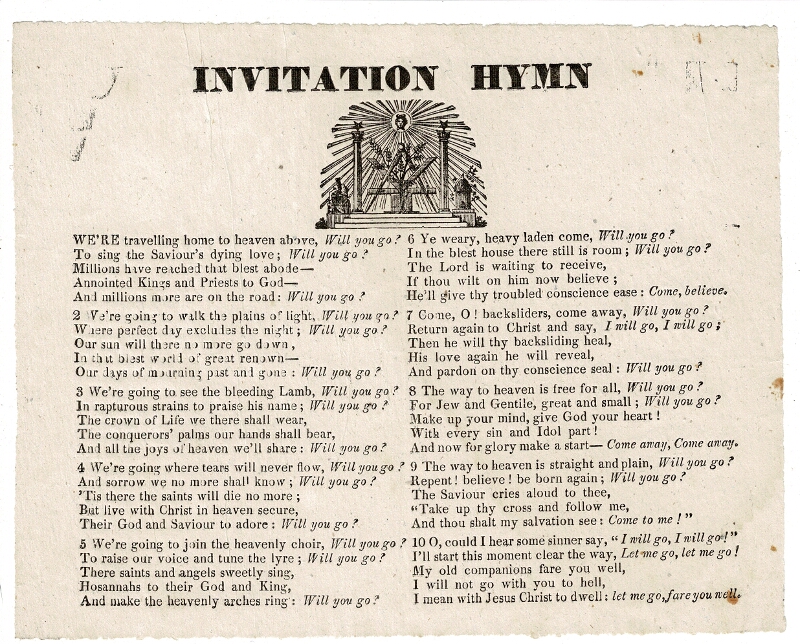 INVITATION HYMN
WE'RE travelling home to heaven above, Will you go?
To sing the Saviour's dying love; Will you go?
Millions have reached that blest abode—
Annointed Kings and Priests to God—
And millions more are on the road: Will you go?
2 We're going to walk the plains of light, Will you go?
Where perfect day excludes the night; Will you go?
Our sun will there no more go down,
In that blest world of great renown—
Our days of mourning past and gone: Will you go?
3 We're going to see the bleeding Lamb, Will you go?
In rapturous strains to praise his name; Will you go?
The crown of Life we there shall wear,
The conquerors' palms our hands shall bear,
And all the joys of heaven we'll share: Will you go?
4 We're going where tears will never flow, Will you go?
And sorrow we no more shall know; Will you go?
'Tis there the saints will die no more;
But live with Christ in heaven secure,
Their God and Saviour to adore: Will you go?
5 We're going to join the heavenly choir, Will you go?
To raise our voice and tune the lyre; Will you go?
There saints and angels sweetly sing,
Hosannahs to their God and King,
And make the heavenly arches ring: Will you go?
6 Ye weary, heavy laden come, Will you go?
In the blest house there still is room; Will you go?
The Lord is waiting to receive,
If thou wilt on him now believe;
He'll give thy troubled conscience ease: Come, believe.
7 Come, O! backsliders, come away, Will you go?
Return again to Christ and say, I will go, I will go;
Then he will thy backsliding heal,
His love again he will reveal,
And pardon on thy conscience seal: Will you go?
8 The way to heaven is free for all, Will you go?
For Jew and Gentile, great and small; Will you go?
Make up your mind, give God your heart!
With every sin and Idol part!
And now for glory make a start— Come away, Come away.
9 The way to heaven is straight and plain, Will you go?
Repent! believe! be born again; Will you go?
The Saviour cries aloud to thee,
"Take up thy cross and follow me,
And thou shalt my salvation see: Come to me!"
10 O, could I hear some sinner say, "I will go, I will go!"
I'll start this moment clear the way, Let me go, let me go!
My old companions fare you well,
I will not go with you to hell,
I mean with Jesus Christ to dwell: let me go, fare you well.